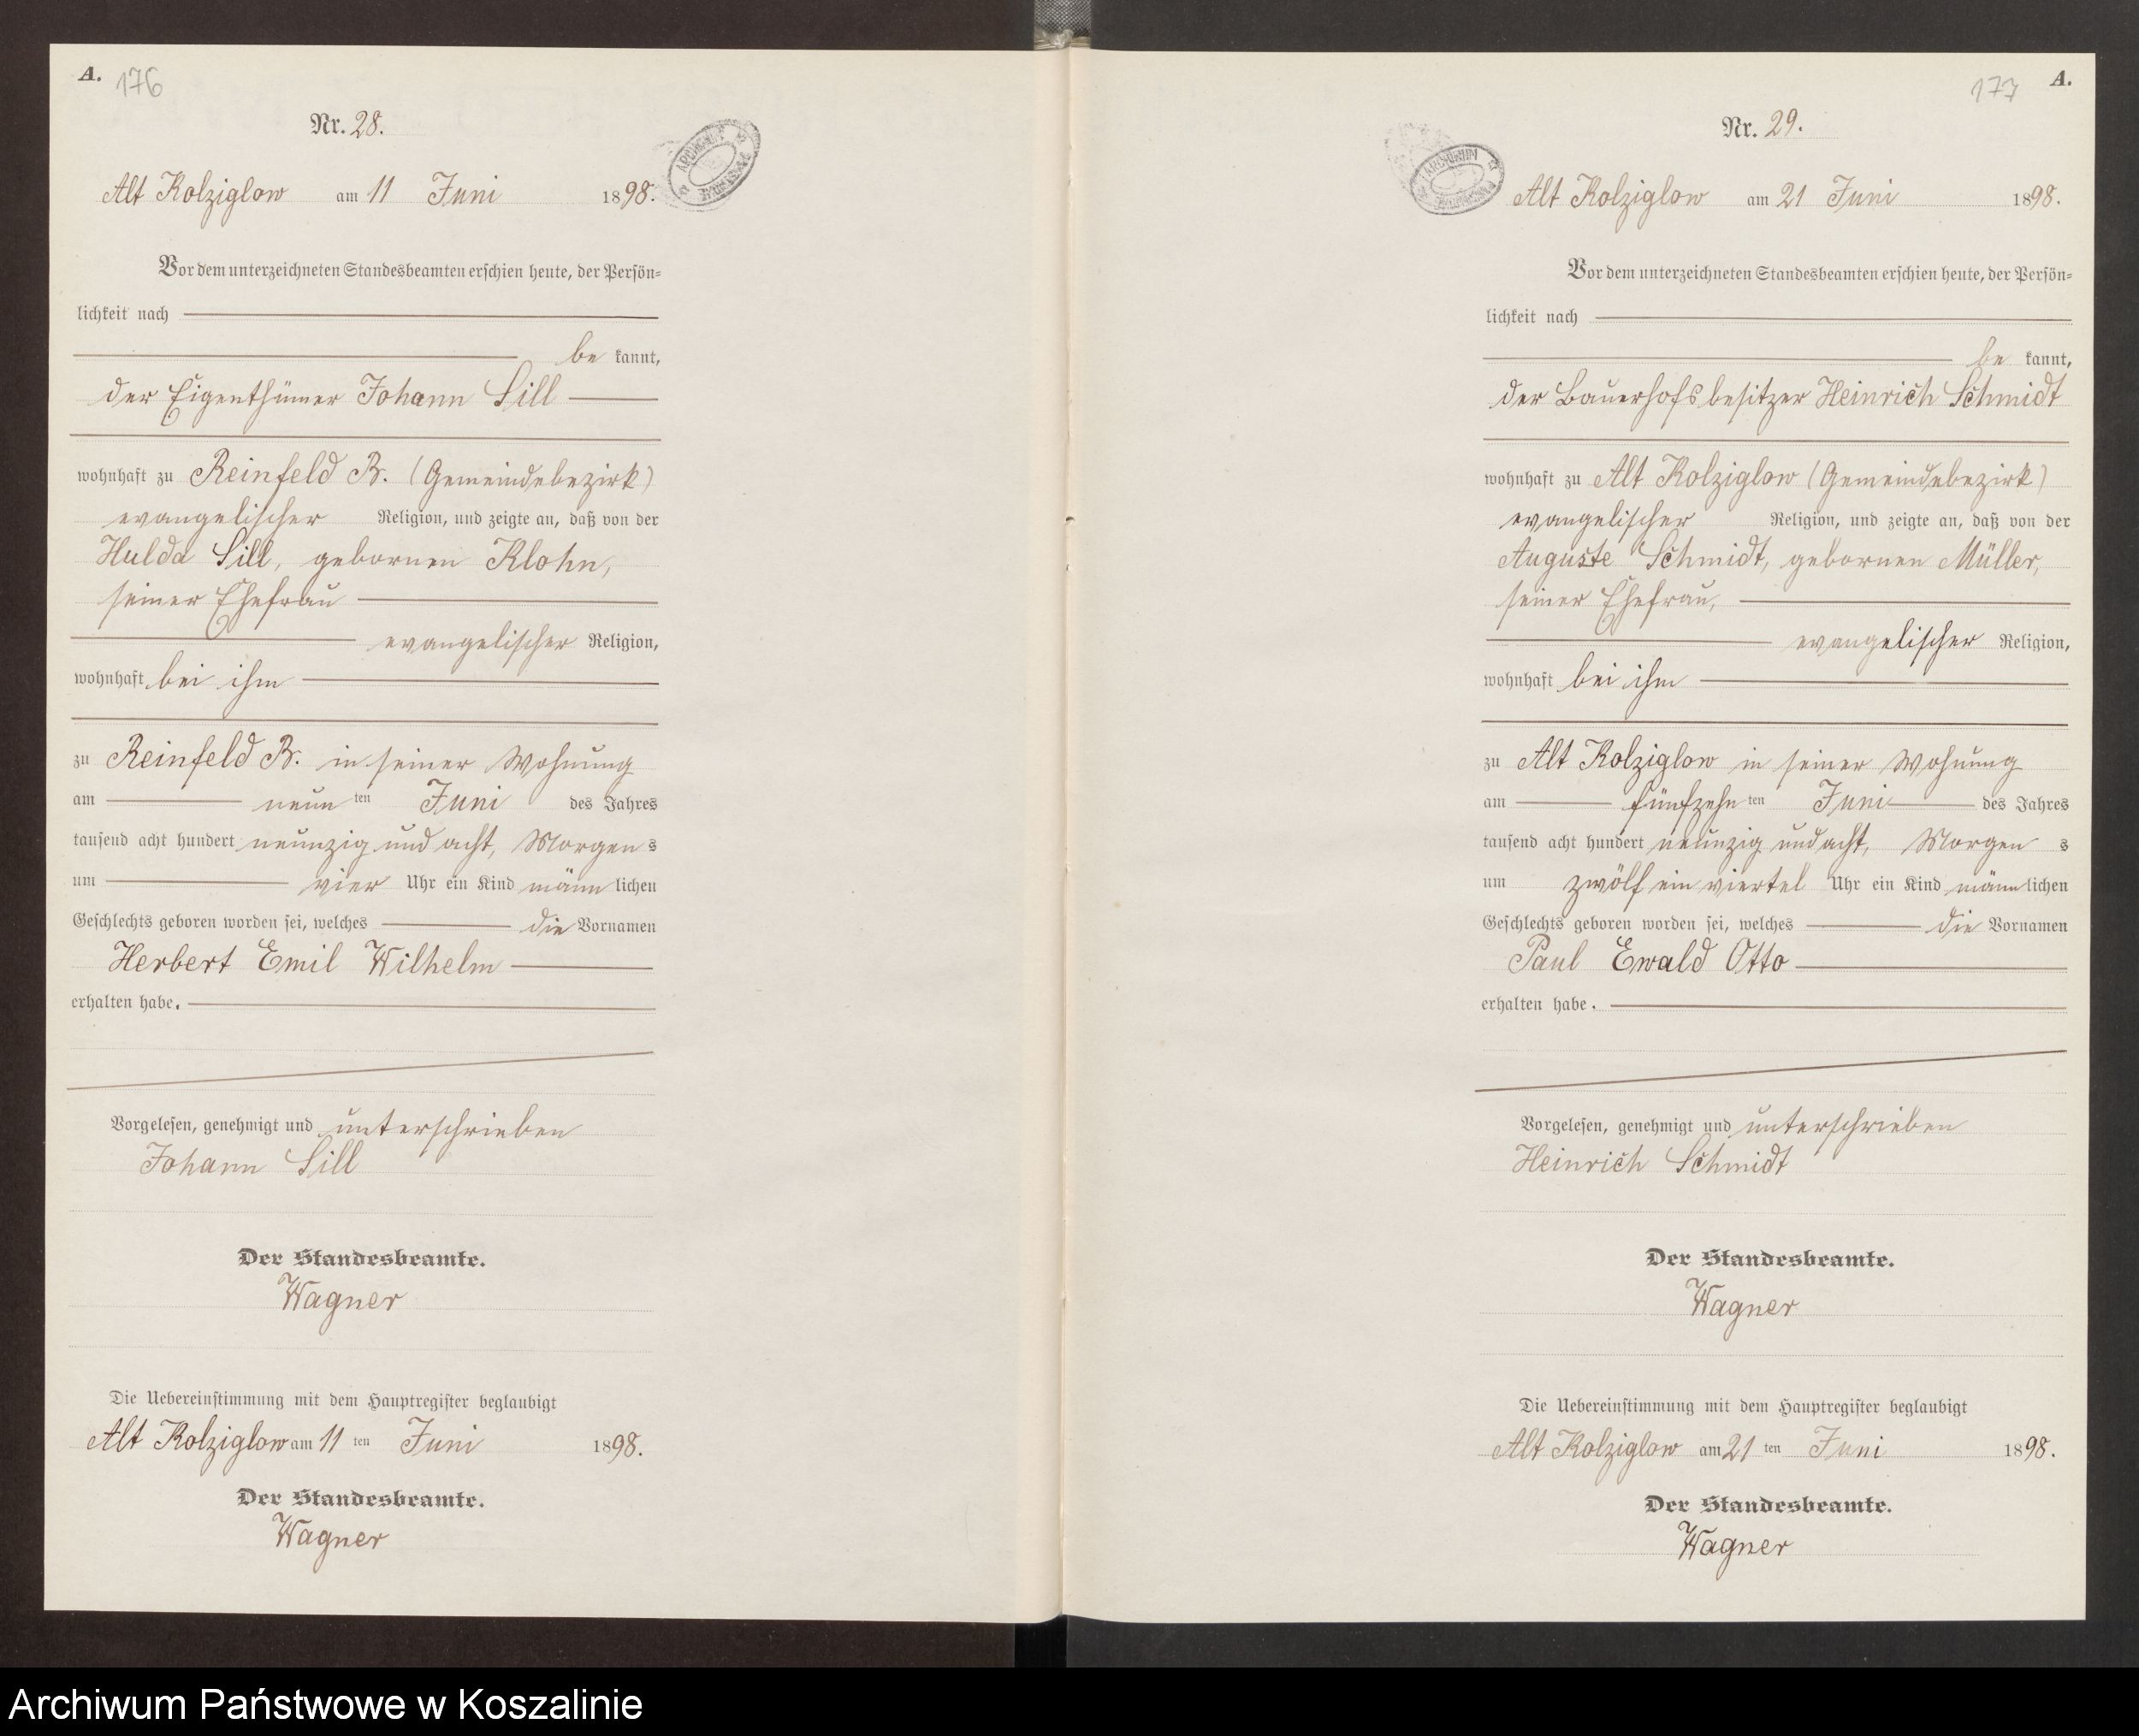 A. 176
Nr. 28.
Alt Kolziglow am 11 Juni 1898.
Vor dem unterzeichneten Standesbeamten erschien heute, der Persön-
lichkeit nach
be kannt,
der Eigenthümer Johann Sill
wohnhaft zu Reinfeld B. (Gemeindebezirk)
evangelischer Religion, und zeigte an, daß von der
Hulda Sill, gebornen Klohn,
seiner Ehefrau
evangelischer Religion,
wohnhaft bei ihm
zu Reinfeld B. in seiner Wohnung
am neun ten Juni des Jahres
tausend acht hundert neunzig und acht, Morgen s
um vier Uhr ein Kind männ lichen
Geschlechts geboren worden sei, welches die Vornamen
Herbert Emil Wilhelm
erhalten habe.
Vorgelesen, genehmigt und unterschrieben
Johann Sill
Der Standesbeamte.
Wagner
Die Uebereinstimmung mit dem Hauptregister beglaubigt
Alt Kolziglow am 11 ten Juni 1898.
Der Standesbeamte.
Wagner
177 A.
Nr. 29.
Alt Kolziglow am 21 Juni 1898.
Vor dem unterzeichneten Standesbeamten erschien heute, der Persön-
lichkeit nach
be kannt,
der Bauerhofsbesitzer Heinrich Schmidt
wohnhaft zu Alt Kolziglow (Gemeindebezirk)
evangelischer Religion, und zeigte an, daß von der
Auguste Schmidt, gebornen Müller,
seiner Ehefrau,
evangelischer Religion,
wohnhaft bei ihm
zu Alt Kolziglow in seiner Wohnung
am fünfzehn ten Juni des Jahres
tausend acht hundert neunzig und acht, Morgen s
um zwölf ein viertel Uhr ein Kind männ lichen
Geschlechts geboren worden sei, welches die Vornamen
Paul Ewald Otto
erhalten habe.
Vorgelesen, genehmigt und unterschrieben
Heinrich Schmidt
Der Standesbeamte.
Wagner
Die Uebereinstimmung mit dem Hauptregister beglaubigt
Alt Kolziglow am 21 ten Juni 1898.
Der Standesbeamte.
Wagner
ARCHIWUM
ARCHIWUM
Archiwum Państwowe w Koszalinie